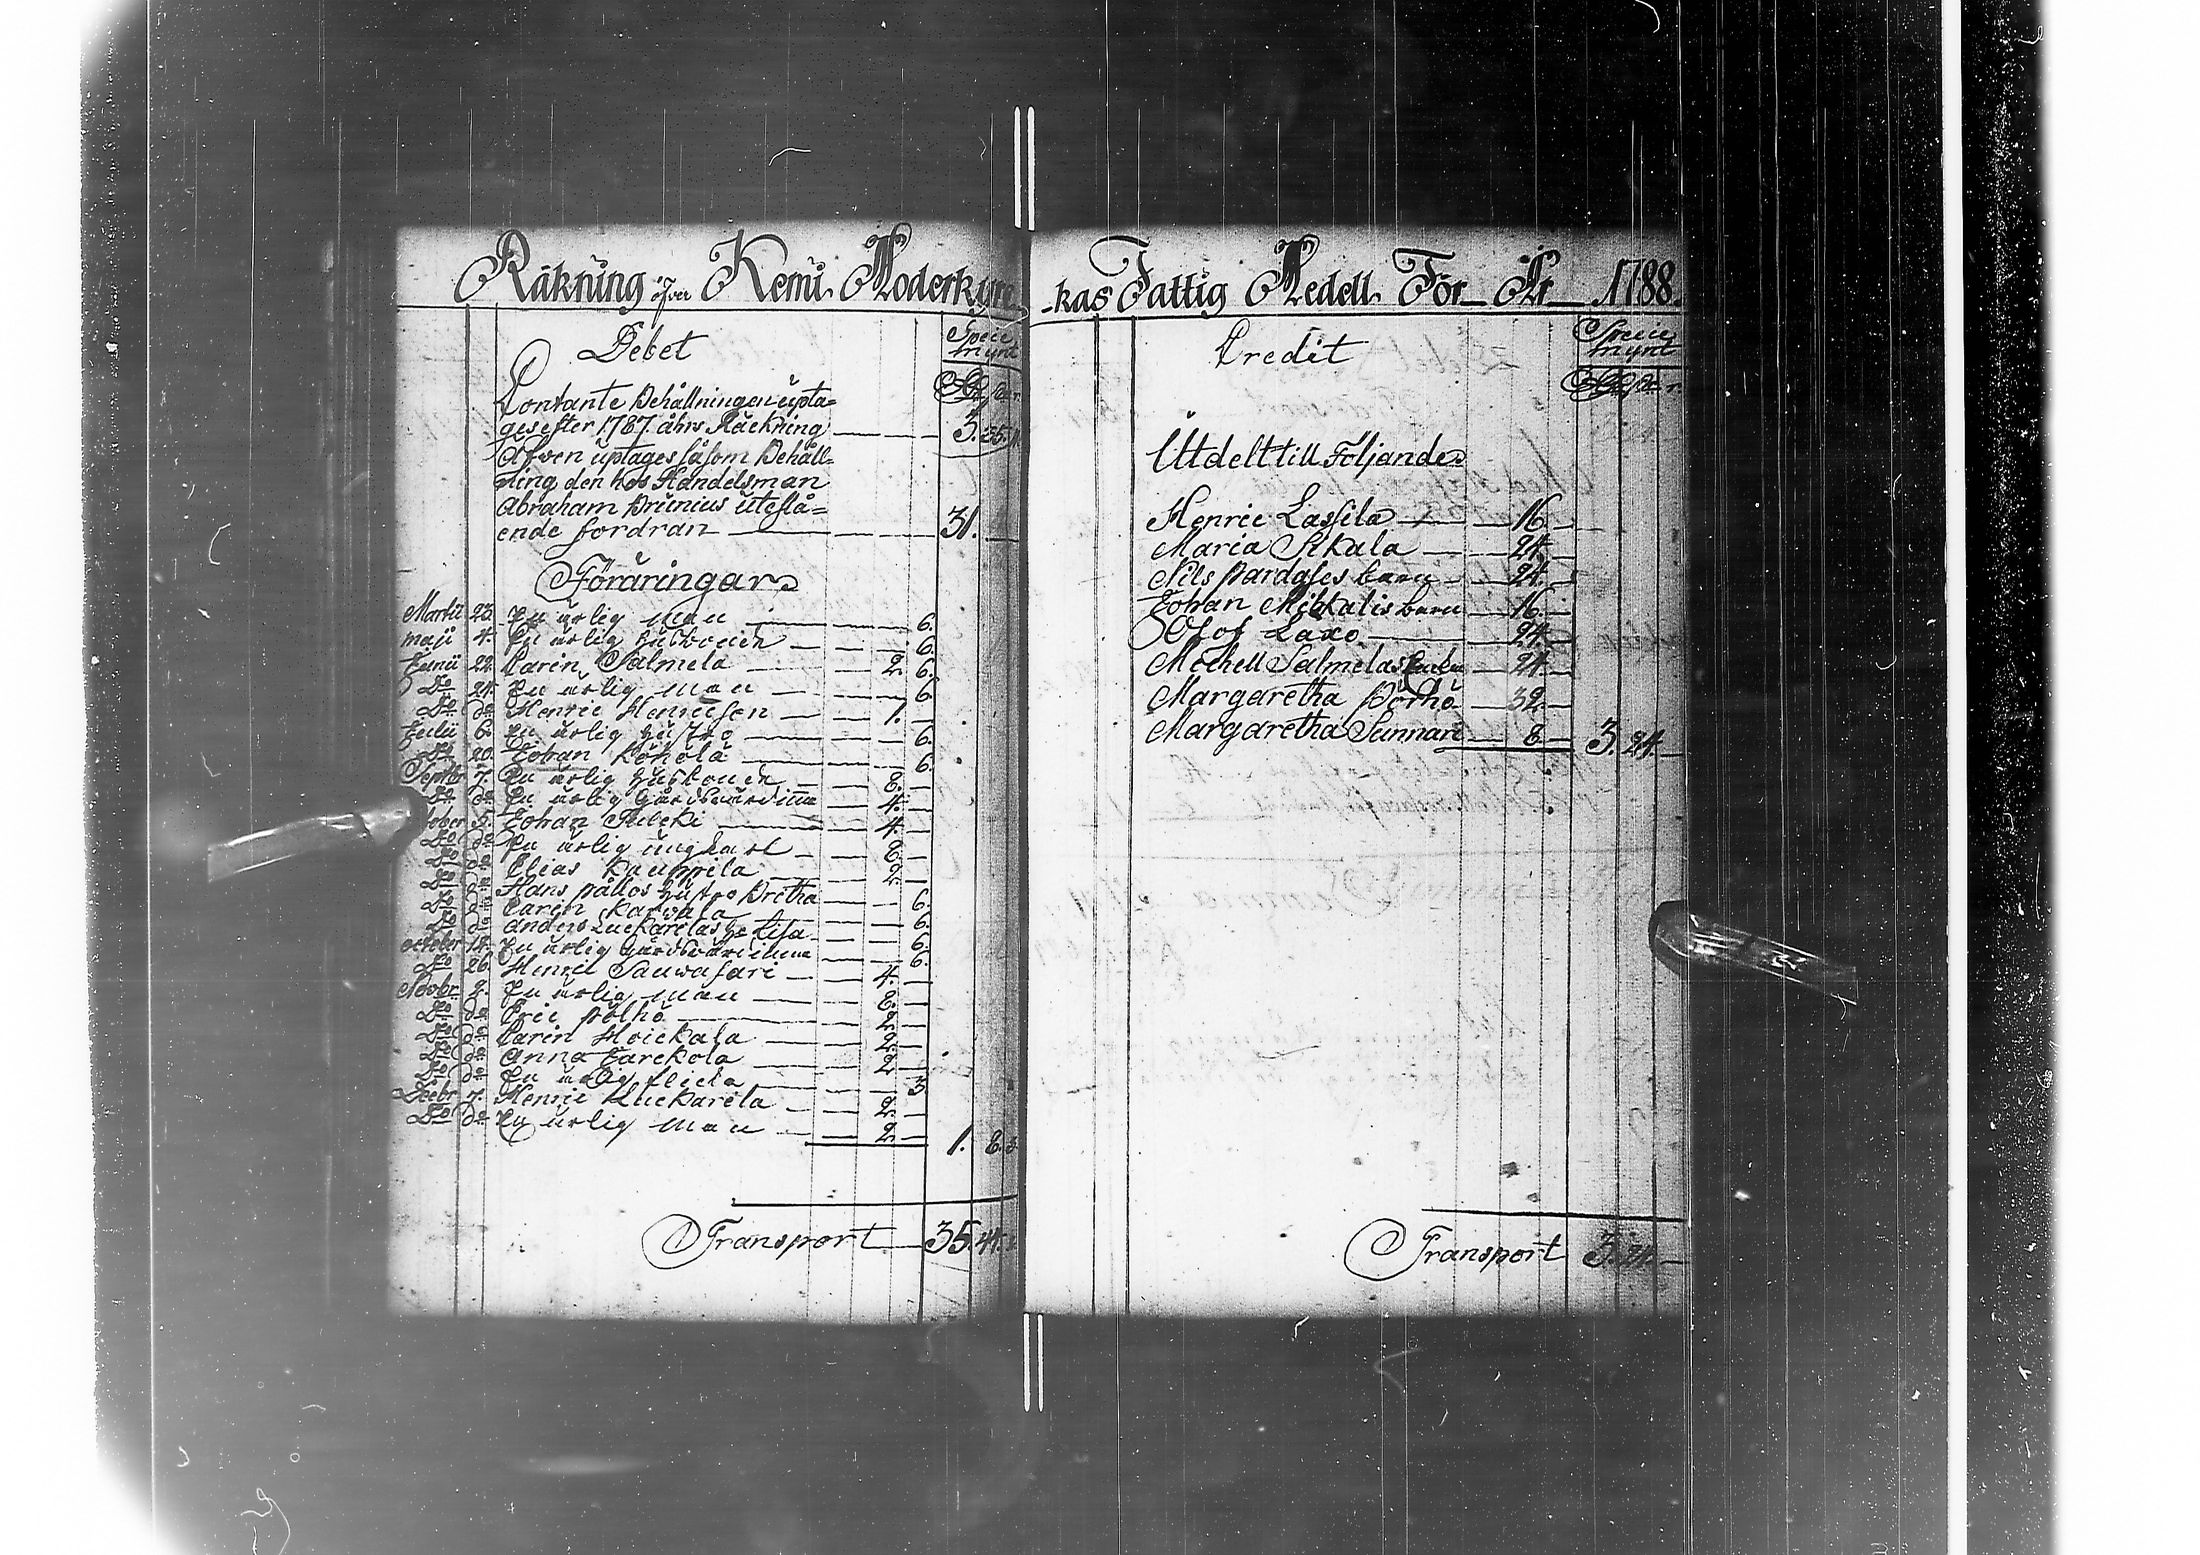 Räkning öfver Kemi Moderkyre
Debet
Specie
mynt
Contante Behållningen upta=
ges efter 1787 åhrs Räckning 3. 35.
Äfwen uptages såsom Behåll=
ning den hos Handelsman
Abraham Brunius utestå=
ende fordran 31.
Föräringar
Martii 23. En ärlig man 6.
Maji 4. En ärlig husbonde 6.
Junii 22. Carin Salmela 2. 6.
Do 24. En ärlig man 6.
Do do Henric Henricson 1.
Julii 6. En ärlig hustro 6.
Do 20. Johan Köhölä 6.
Septbr 7. En ärlig husbonde 8.
Do do En ärlig Gårdswärdinna 4.
5. Johan 4.
Do do En ärlig ungkarl 8.
Do do Elias Kauppila 2.
Do do Hans Pållos hustro Bretha 6.
Do do Carin Karwala 6.
Do do Anders Luckarelas h: Lisa 6.
october 12. En ärlig Gårdswärdinna 6.
Do 26. Henric Sauwasari 4.
Novbr 2. En ärlig man 8.
Do do Eric Pölhö 2.
Do do Carin Hoickala 2.
Do do Anna Jarckola 2
Do do En ärlig flicka 3.
Decbr 7. Henric Luckarela 2.
Do do En ärlig man 2. 1. 8.
Transport 35. 44.
-kas Fattig Medell För År 1788.
Credit
Specie
mynt
Utdelt till Följande
Henric Lassila 16.
Maria Sikala 24.
Nils Pardases barn 24.
Johan Mikkalis barn 16.
Olof Laxo 24.
Mickell Salmelas Enka 24.
Margaretha Pörhö 32.
Margaretha Sunnari 8. 3. 24.
Transport 3. 24.